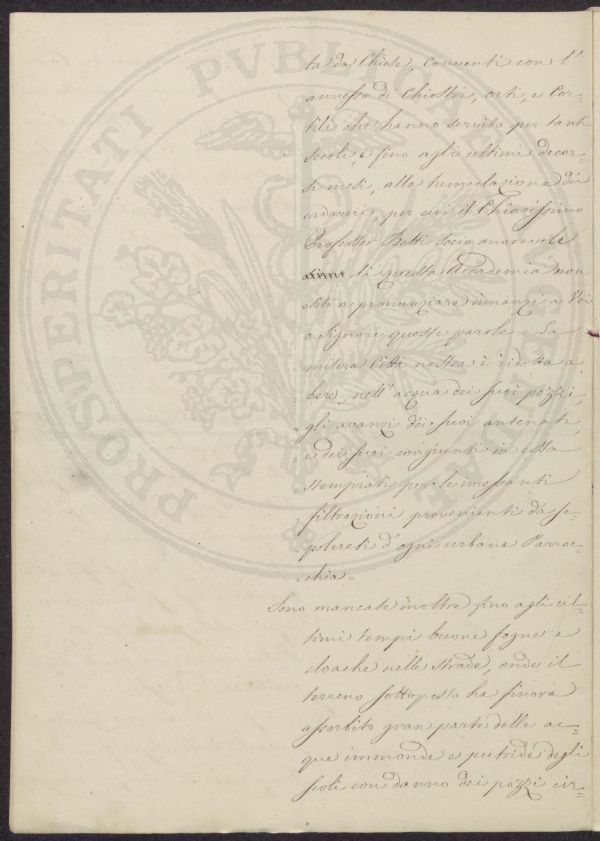 ta da Chiese, Conventi con l'
annesso di Chiostri, orti, e Cor=
tili che hanno servito per tanti
secoli, e fino agli ultimi decor=
si mesi, alla tumulazione dei
cadaveri, per cui il Chiarissimo
Professor Betti socio onorevole
di questa Accademia non
esitò a pronunziare innanzi a Voi
o Signori queste parole = La
misera Città nostra è ridotta a
bere nell'acqua dei suoi pozzi,
gli avanzi dei suoi antenati,
e dei suoi congiunti in essa
stemprati per le incessanti
filtrazioni provenienti da se=
polcreti d'ogni urbana Parroc=
chia.
Sono mancate inoltre fino agli ul=
timi tempi buone fogne e
cloache nelle strade, onde il
terreno sottoposto ha finora
assorbito gran parte delle ac=
que immonde e putride degli
scoli con danno dei pozzi cir=
PROSPERITATI PVBLICAE